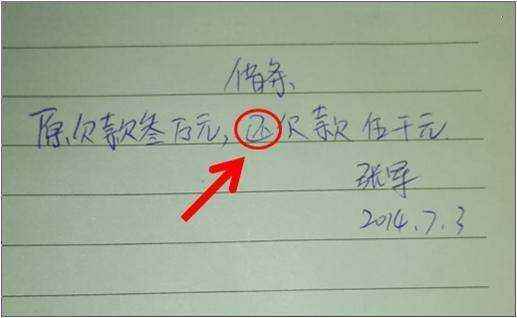 借条
原欠款叁万元，还欠款伍千元
张军
2014.7.3